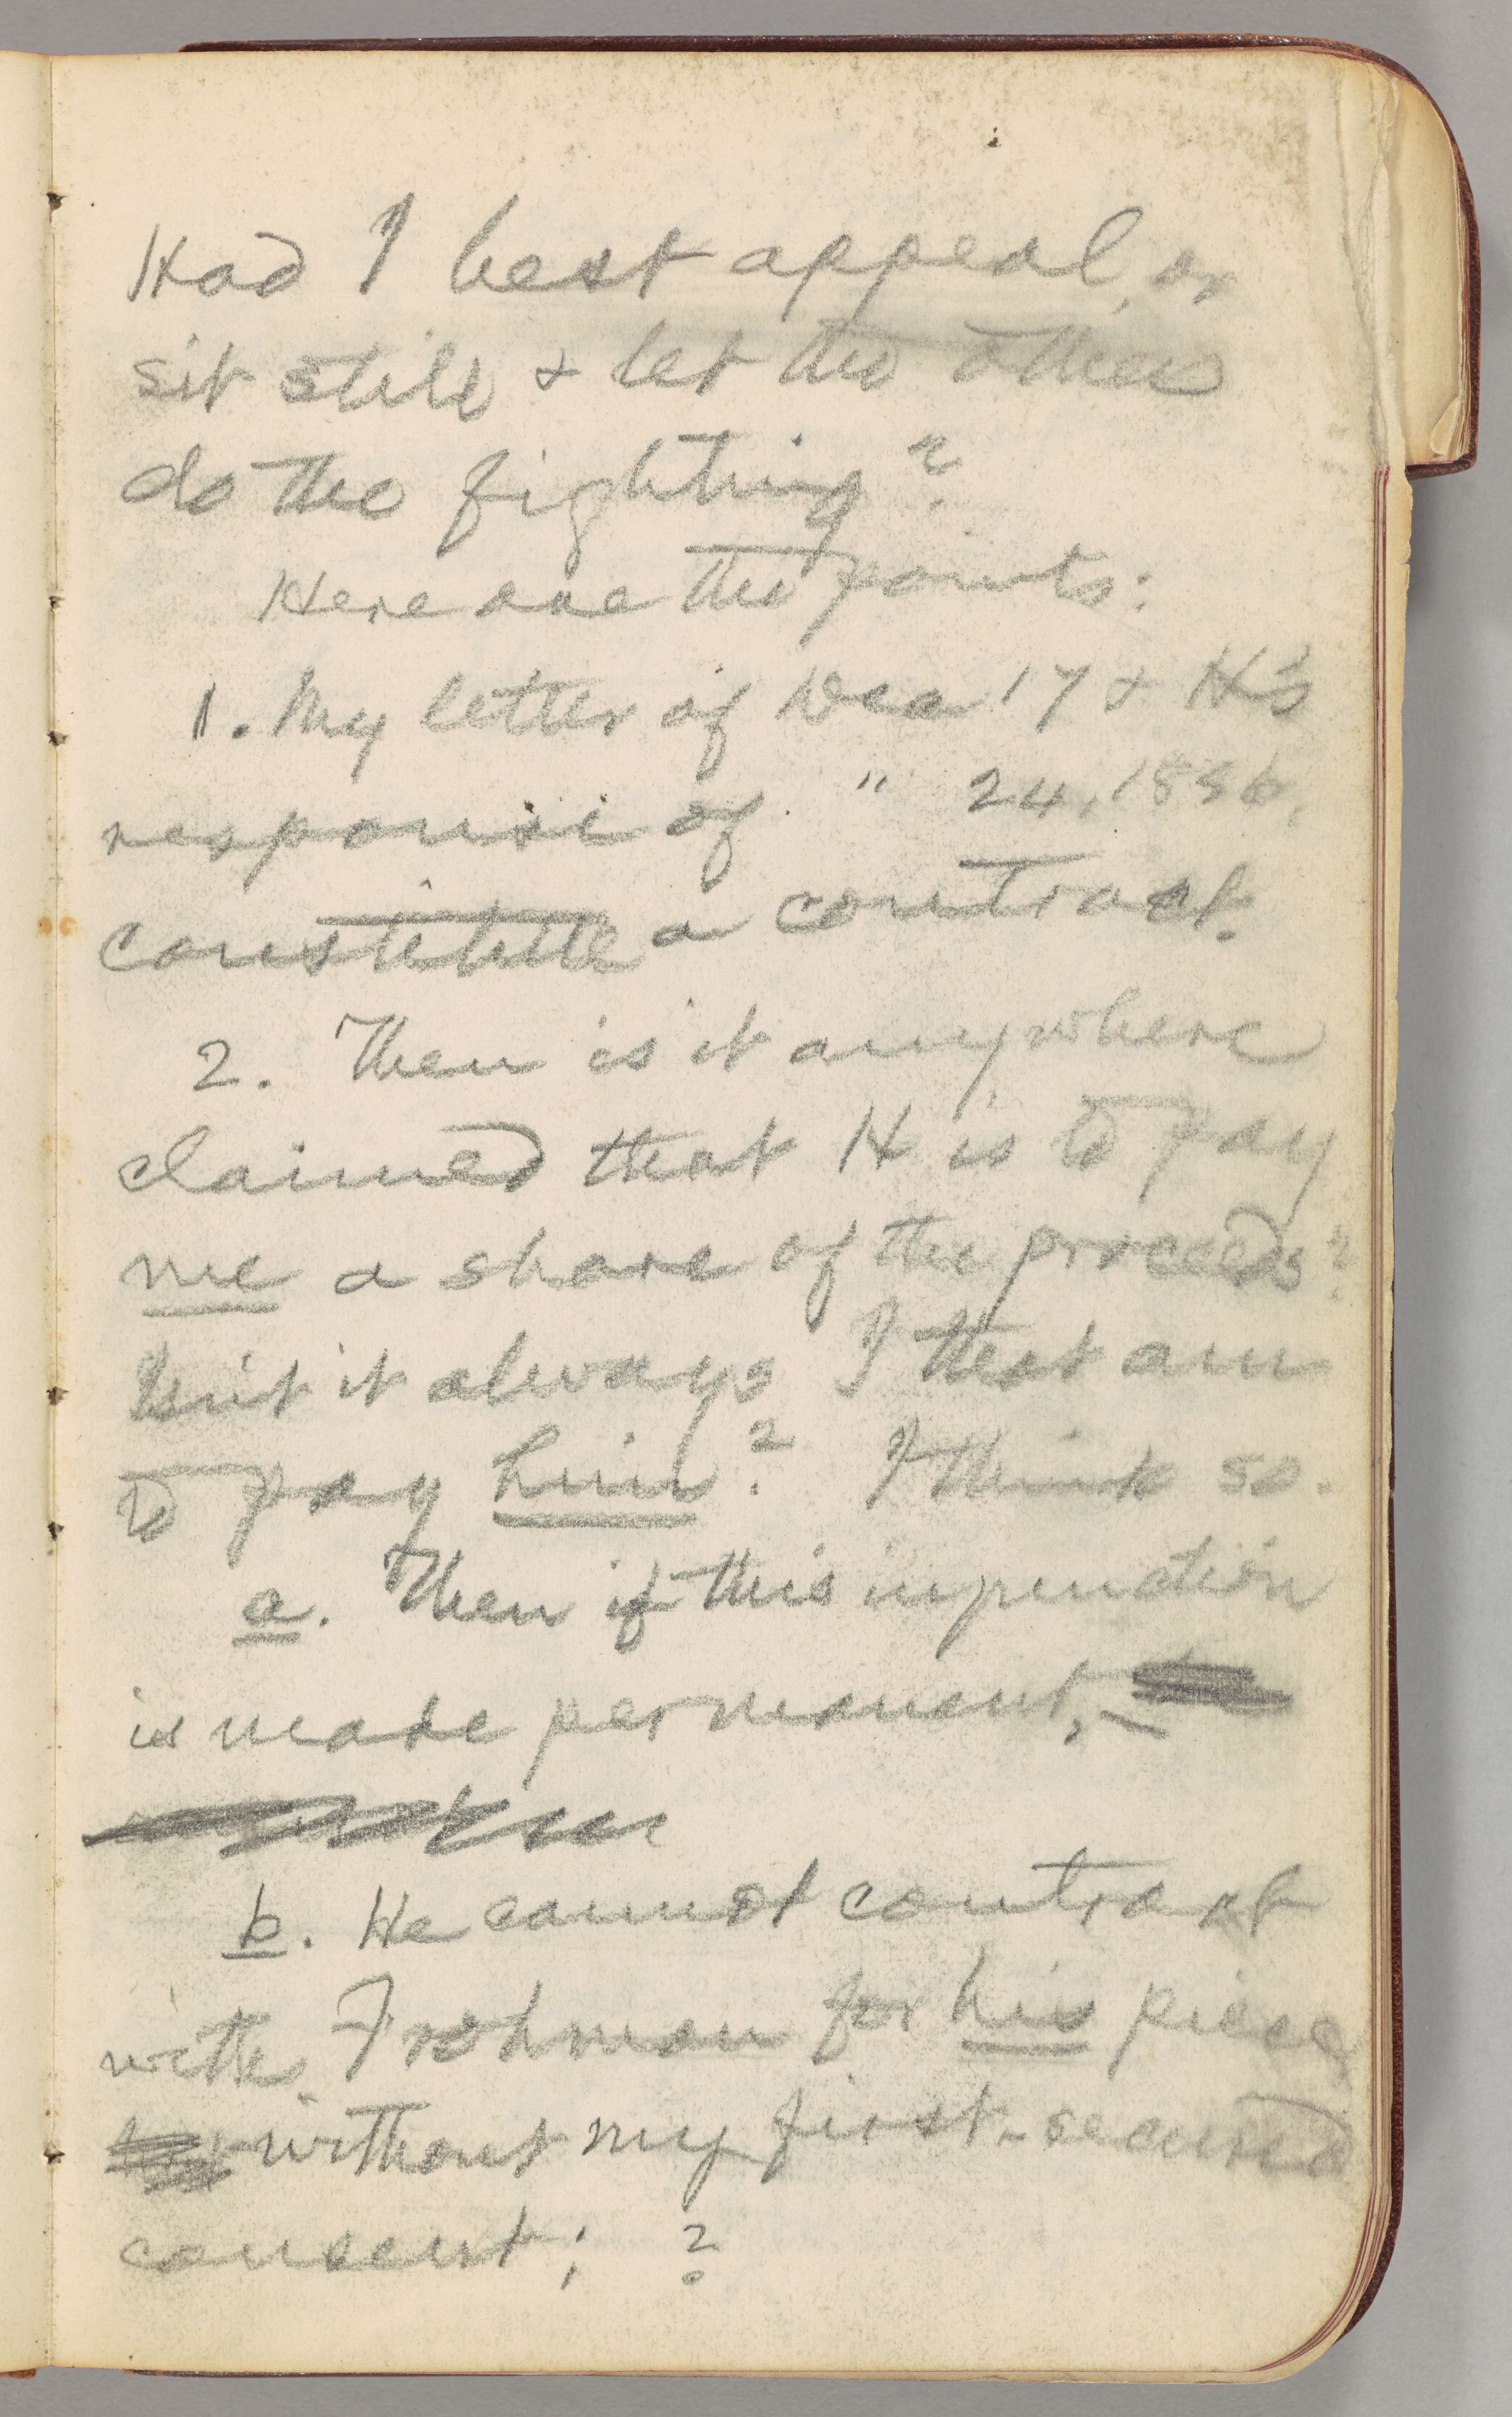 Had I best appeal, or
sit still & let the others
do the fighting?
Here are the points:
1. My letter of Dec 17 & H's
response of " 24, 1886,
constitute a contract.
2. Then is it anywhere
claimed that H is to pay
me a share of the proceeds?
Isn't it always I that am
to pay him? I think so.
a. Then if this injunction
is made permanent, —
b. He cannot contract
with Frohman for his piece
without my first-secured
consent; ?